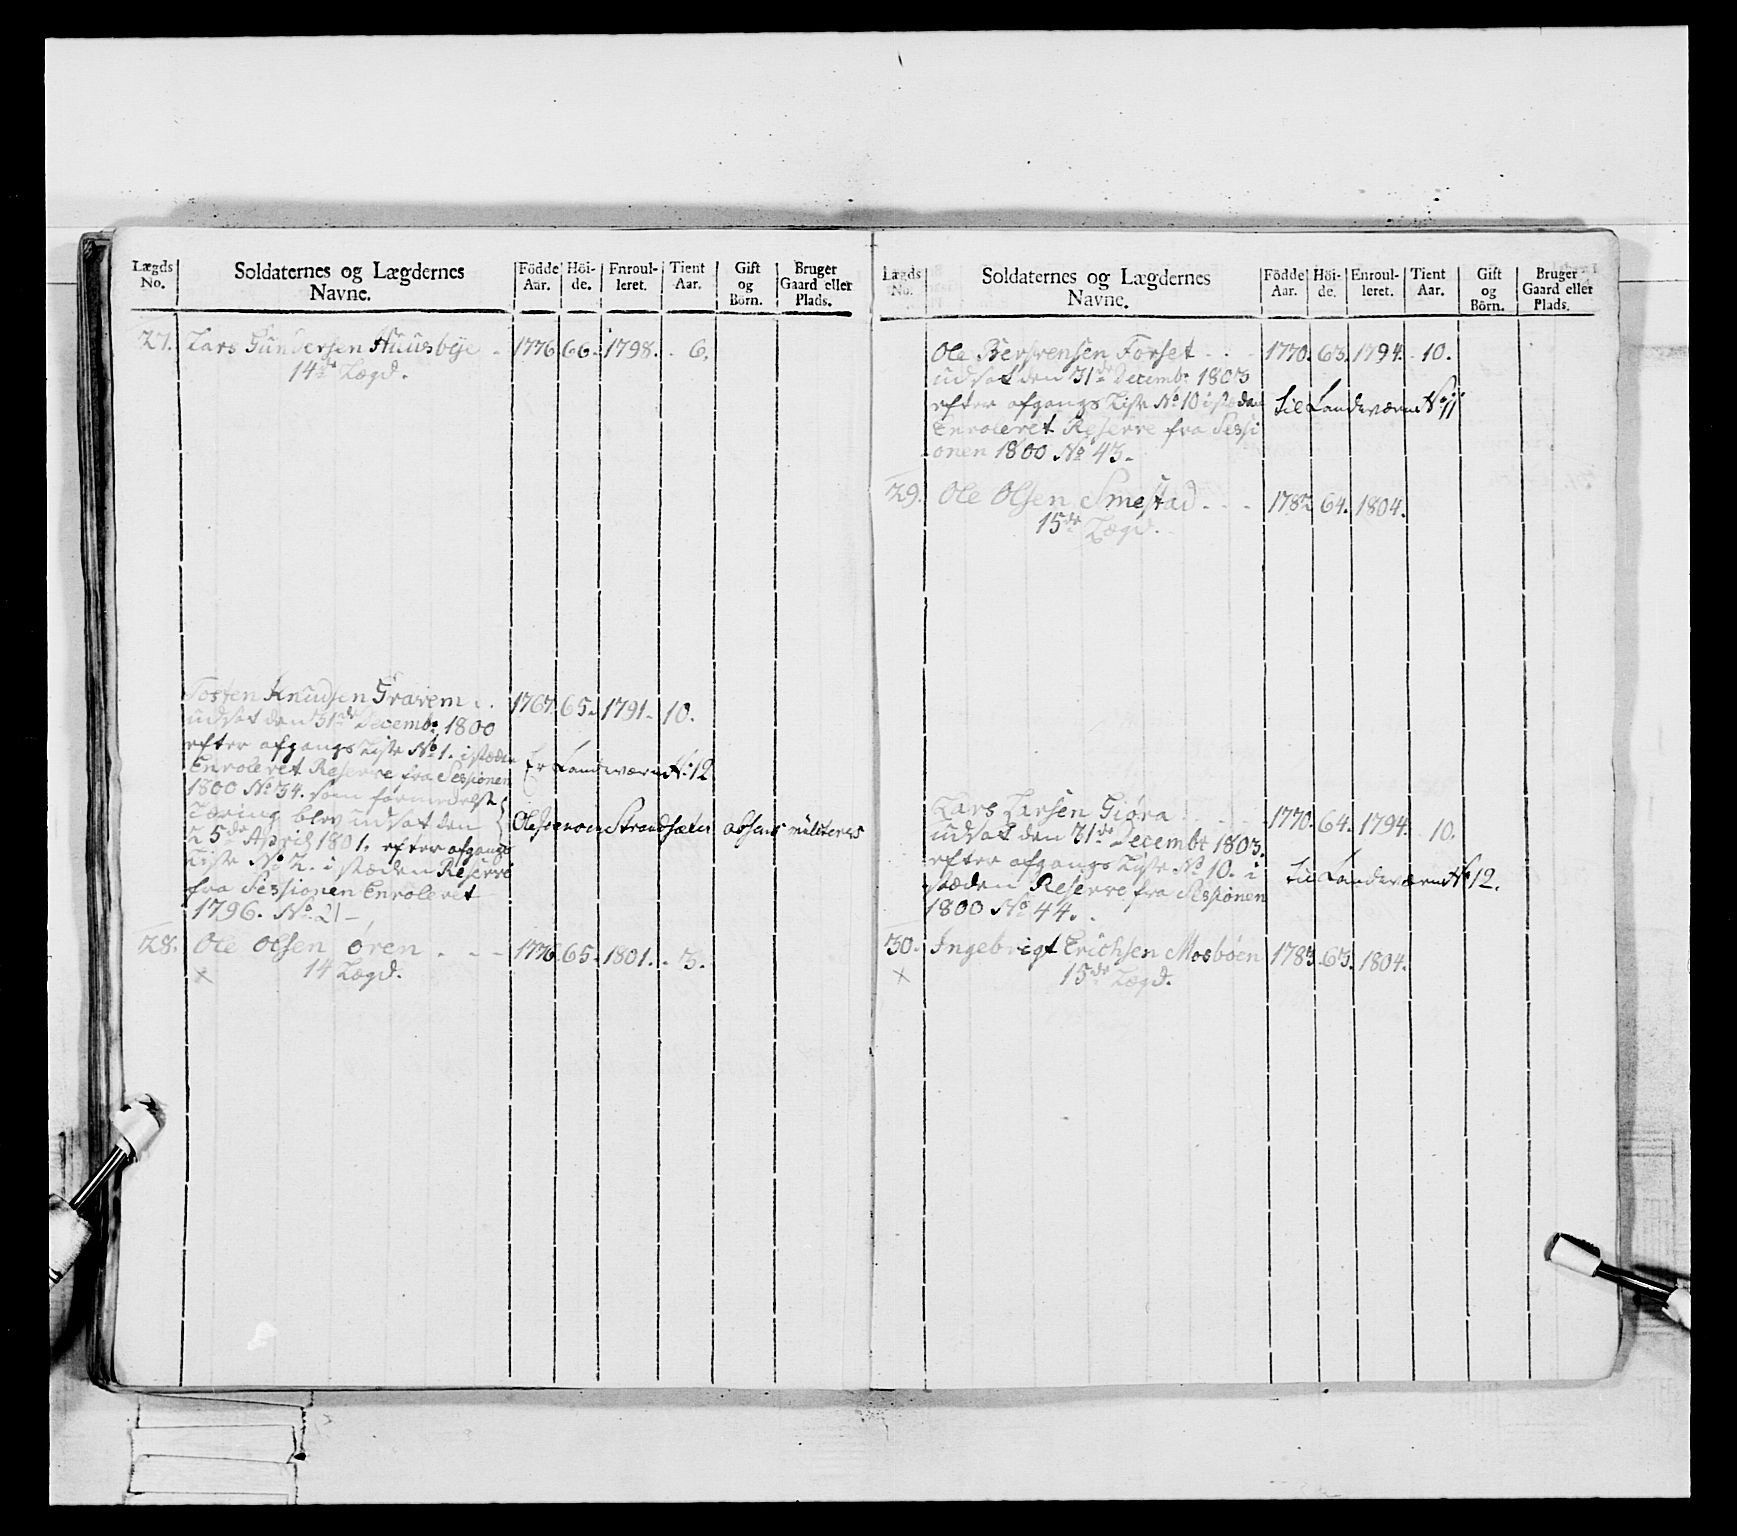 Lægds No. | Soldaternes og Lægdernes Navne. | Födde Aar. | Höi-de. | Enroul-leret. | Tient Aar. | Gift og Börn. | Bruger Gaard eller Plads.
27. Lars Gundersen Huusbye - 1776. 66. 1798. - 6.
14de Lægd.
Tosten Knudsen Gravem . . 1767. 65. 1791. 10.
udsat den 31de Decembr 1800
efter afgangs Liste No 1. i stæden
Enroleret Reserve fra Sessionen Er Landeværn No 12
1800 No 34. som formedelst
Tæring blev udsat den Strandsæter
25de April 1801. efter afgangs
Liste No 2. i stæden Reserve
fra Sessionen Enroleret
1796. No 21 -
28. Ole Olsen Øren . - - 1776. 65. 1801. - 3.
× 14 Lægd.
Lægds No. | Soldaternes og Lægdernes Navne. | Födde Aar. | Höi-de. | Enroul-leret. | Tient Aar. | Gift og Börn. | Bruger Gaard eller Plads.
Ole Forset . . - 1770. 63. 1794. 10.
udsat den 31de Decembr 1803
efter afgangs Liste No 10 i stæden til Landeværn No 11
Enroleret Reserve fra Sessi
onen 1800 No 43.
29. Ole Olsen Smestad . . - 1782. 64. 1804.
15de Lægd.
Lars Larsen Giøra . . - 1770. 64. 1794. 10.
udsat den 31de Decembr 1803.
efter afgangs Liste No 10. i til Landeværn No 12.
stæden Reserve fra Sessionen
1800 No 44. .
30. Ingebrigt Erichsen Mosbøen 1783. 63. 1804.
× 15de Lægd.